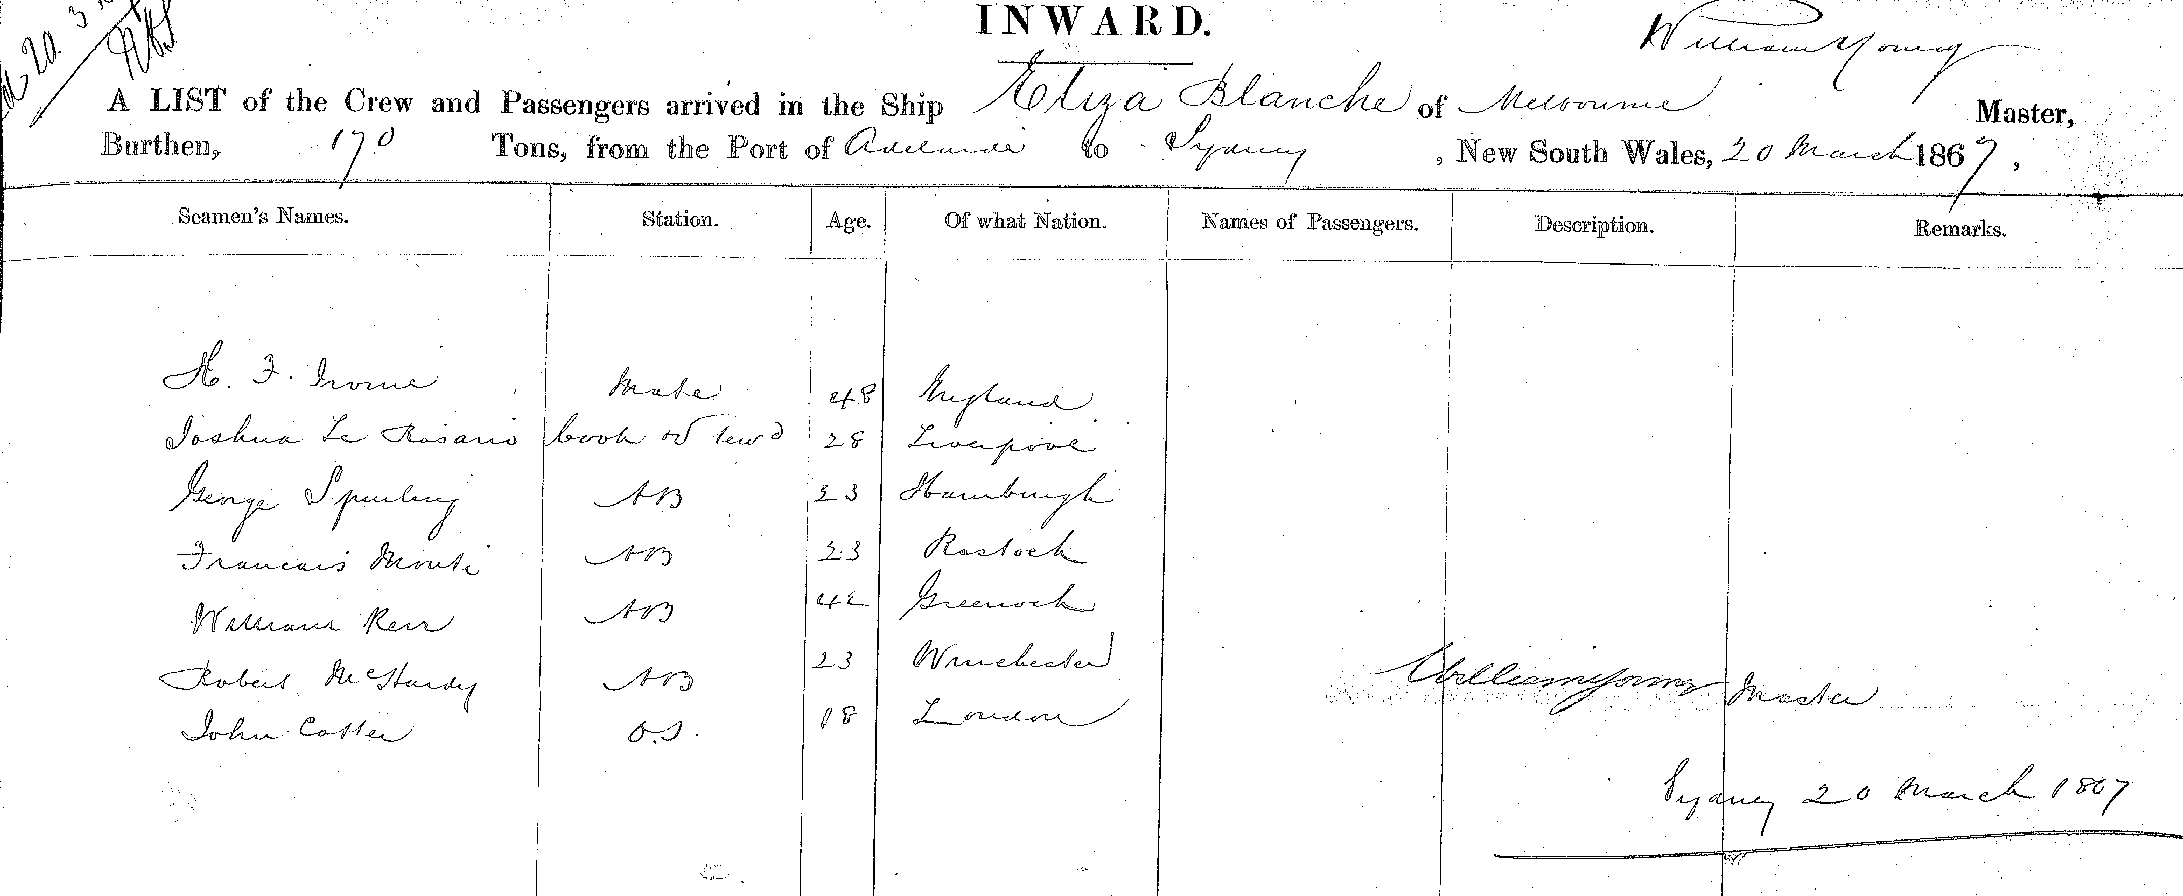 INWARD.
20. 3
William Young
A LIST of the Crew and Passengers arrived in the Ship Eliza Blanche of Melbourne Master,
Burthen, 170 Tons, from the Port of Adelaide to Sydney, New South Wales, 20 March 1867,
Seamen's Names. Station. Age. Of what Nation. Names of Passengers. Description. Remarks.
H. F. Irvine Mate 48 England
Joshua Le Rosario Cook & Stewd 28 Liverpool
George Spurling AB 23 Hamburgh
Francais Monti AB 23 Rostock
William Kerr AB 42 Greenock
Robert McHardy AB 23 Winchester
John Cotter O.S. 18 London
William Young Master
Sydney 20 March 1867